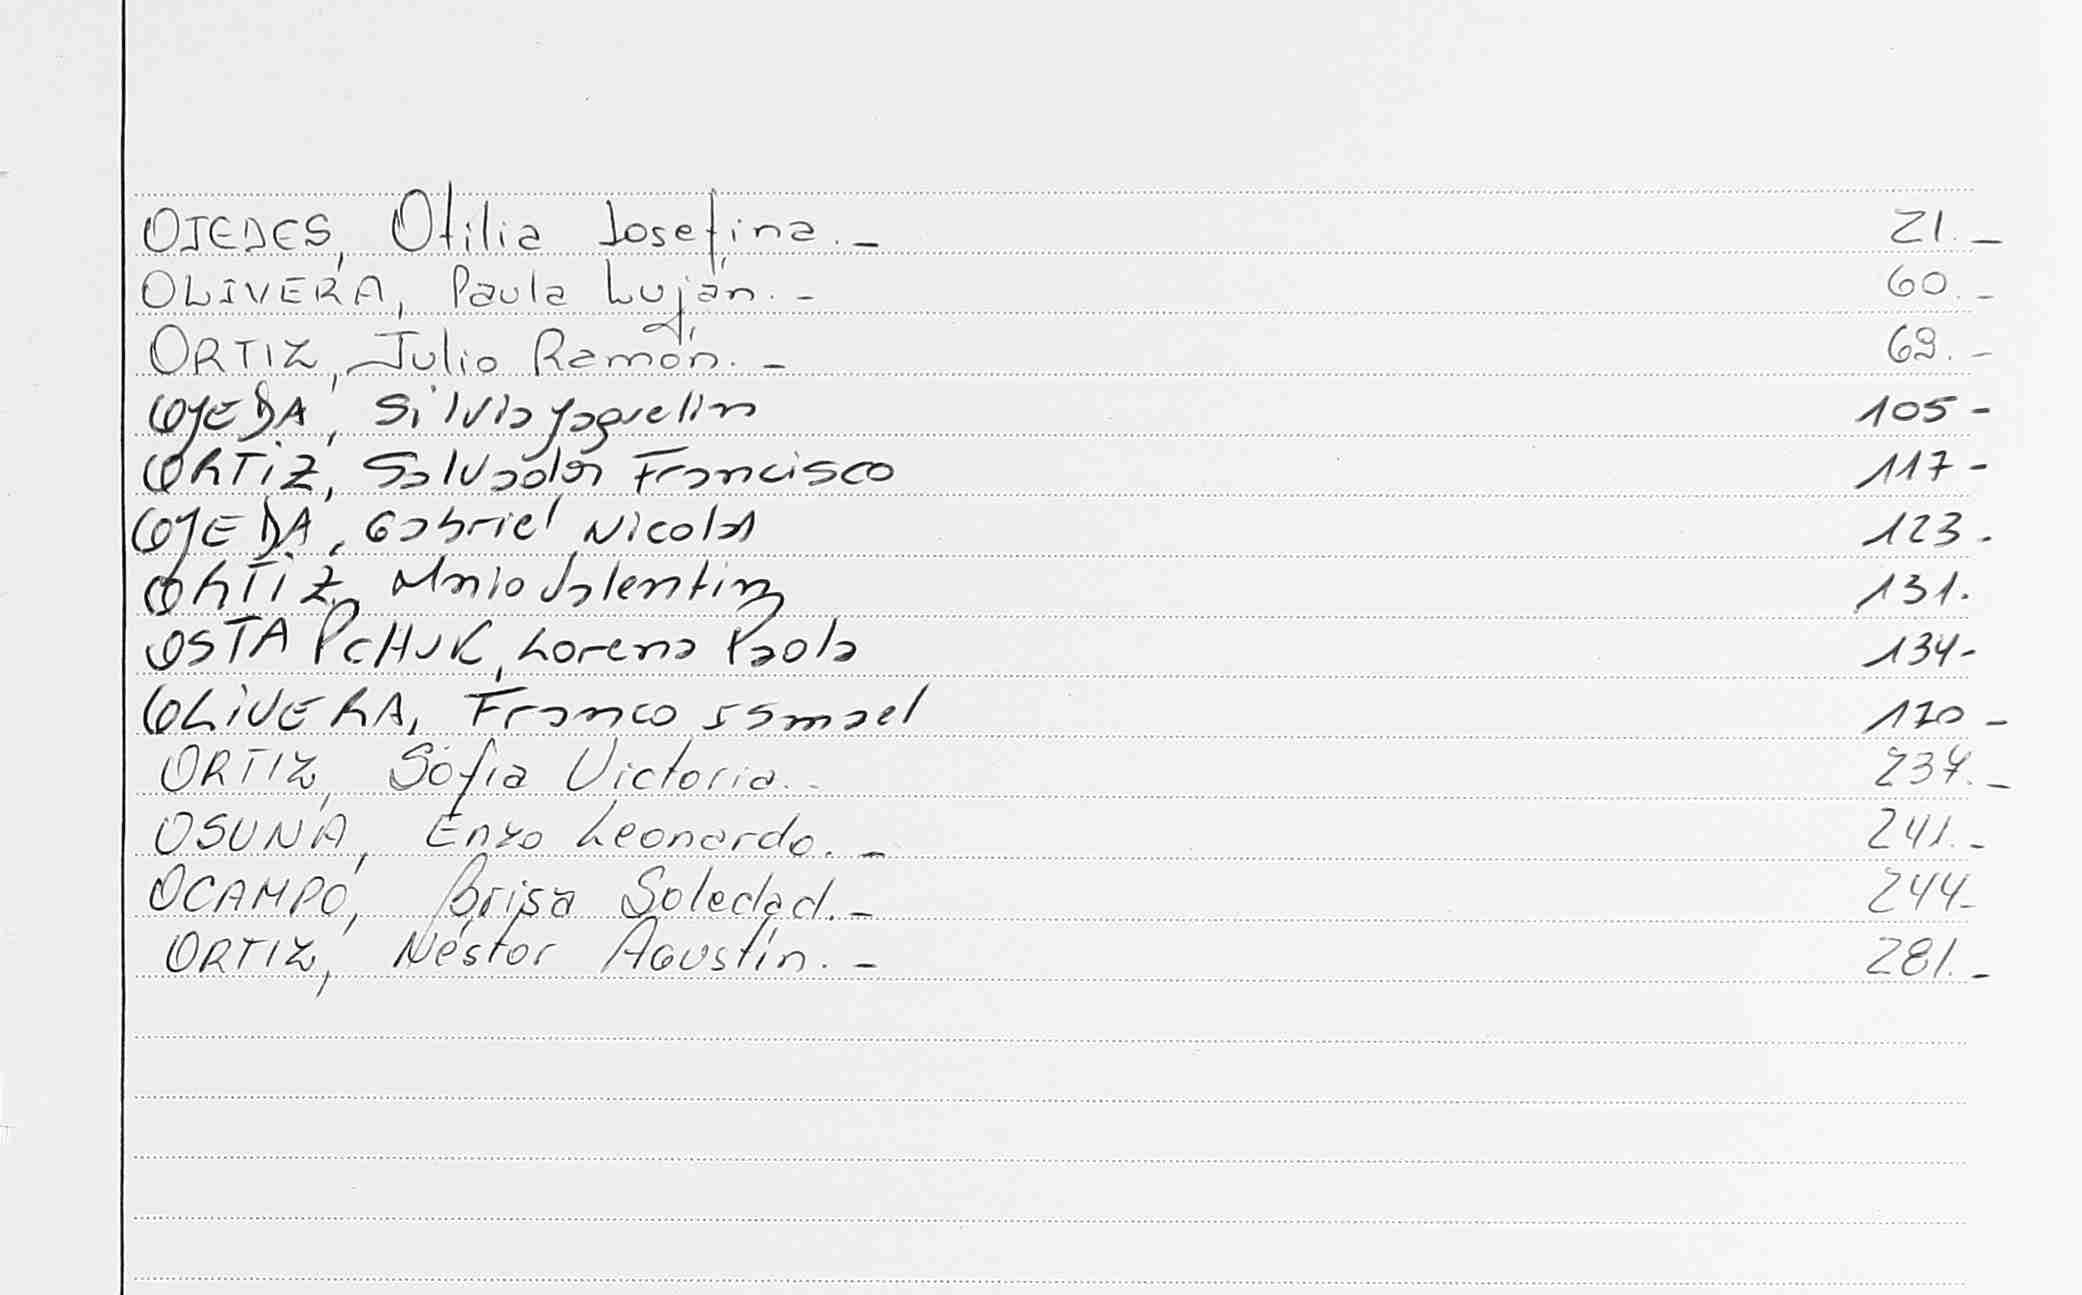 OJEDES, Otilia Josefina.- 21.-
OLIVERA, Paula Luján.- 60.-
ORTIZ, Julio Ramón.- 69.-
OJEDA, Silvia Jaquelin 105-
ORTIZ, Salvador Francisco 117-
OJEDA, Gabriel Nicolás 123.
ORTIZ, Valentin 131.
OSTAPCHUK, Lorena Paola 134-
OLIVERA, Franco Ismael 170-
ORTIZ, Sofía Victoria.- 237.-
OSUNA, Enzo Leonardo.- 241.-
OCAMPO, Brisa Soledad.- 244-
ORTIZ, Néstor Agustín.- 281.-